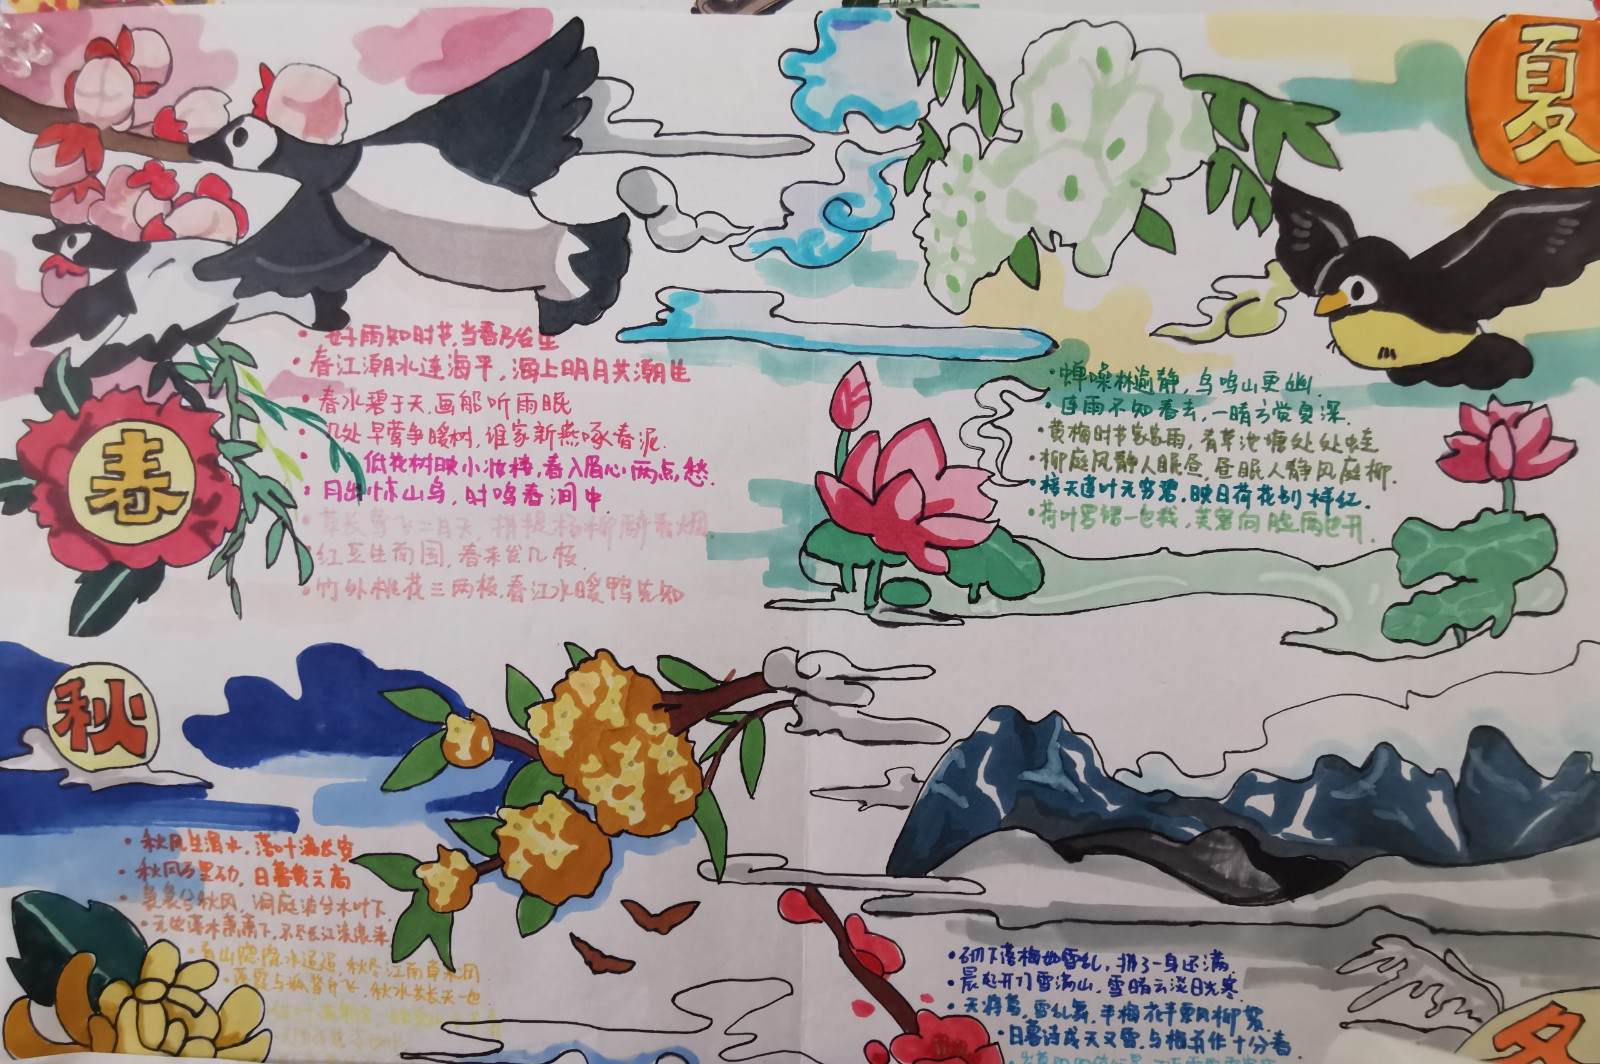 春
好雨知时节,当春乃发生
春江潮水连海平,海上明月共潮生
春水碧于天,画船听雨眠
几处早莺争暖树,谁家新燕啄春泥.
低花树映小妆楼,春入眉心两点愁.
月出惊山鸟,时鸣春涧中.
草长莺飞二月天,拂堤杨柳醉春烟
红豆生南国,春来发几枝.
竹外桃花三两枝,春江水暖鸭先知
夏
蝉噪林逾静,鸟鸣山更幽.
连雨不知春去,一晴方觉夏深.
黄梅时节家家雨,青草池塘处处蛙
柳庭风静人眠昼,昼眠人静风庭柳.
接天莲叶无穷碧,映日荷花别样红.
荷叶罗裙一色裁,芙蓉向脸两边开.
秋
秋风生渭水,落叶满长安
秋风万里动,日暮黄云高
袅袅兮秋风,洞庭波兮木叶下.
无边落木萧萧下,不尽长江滚滚来
青山隐隐水迢迢,秋尽江南草未凋.
落霞与孤鹜齐飞,秋水共长天一色
冬
砌下落梅如雪乱,拂了一身还满
晨起开门雪满山,雪晴云淡日光寒
天将暮,雪乱舞,半梅花半飘柳絮
日暮诗成天又雪,与梅并作十分春